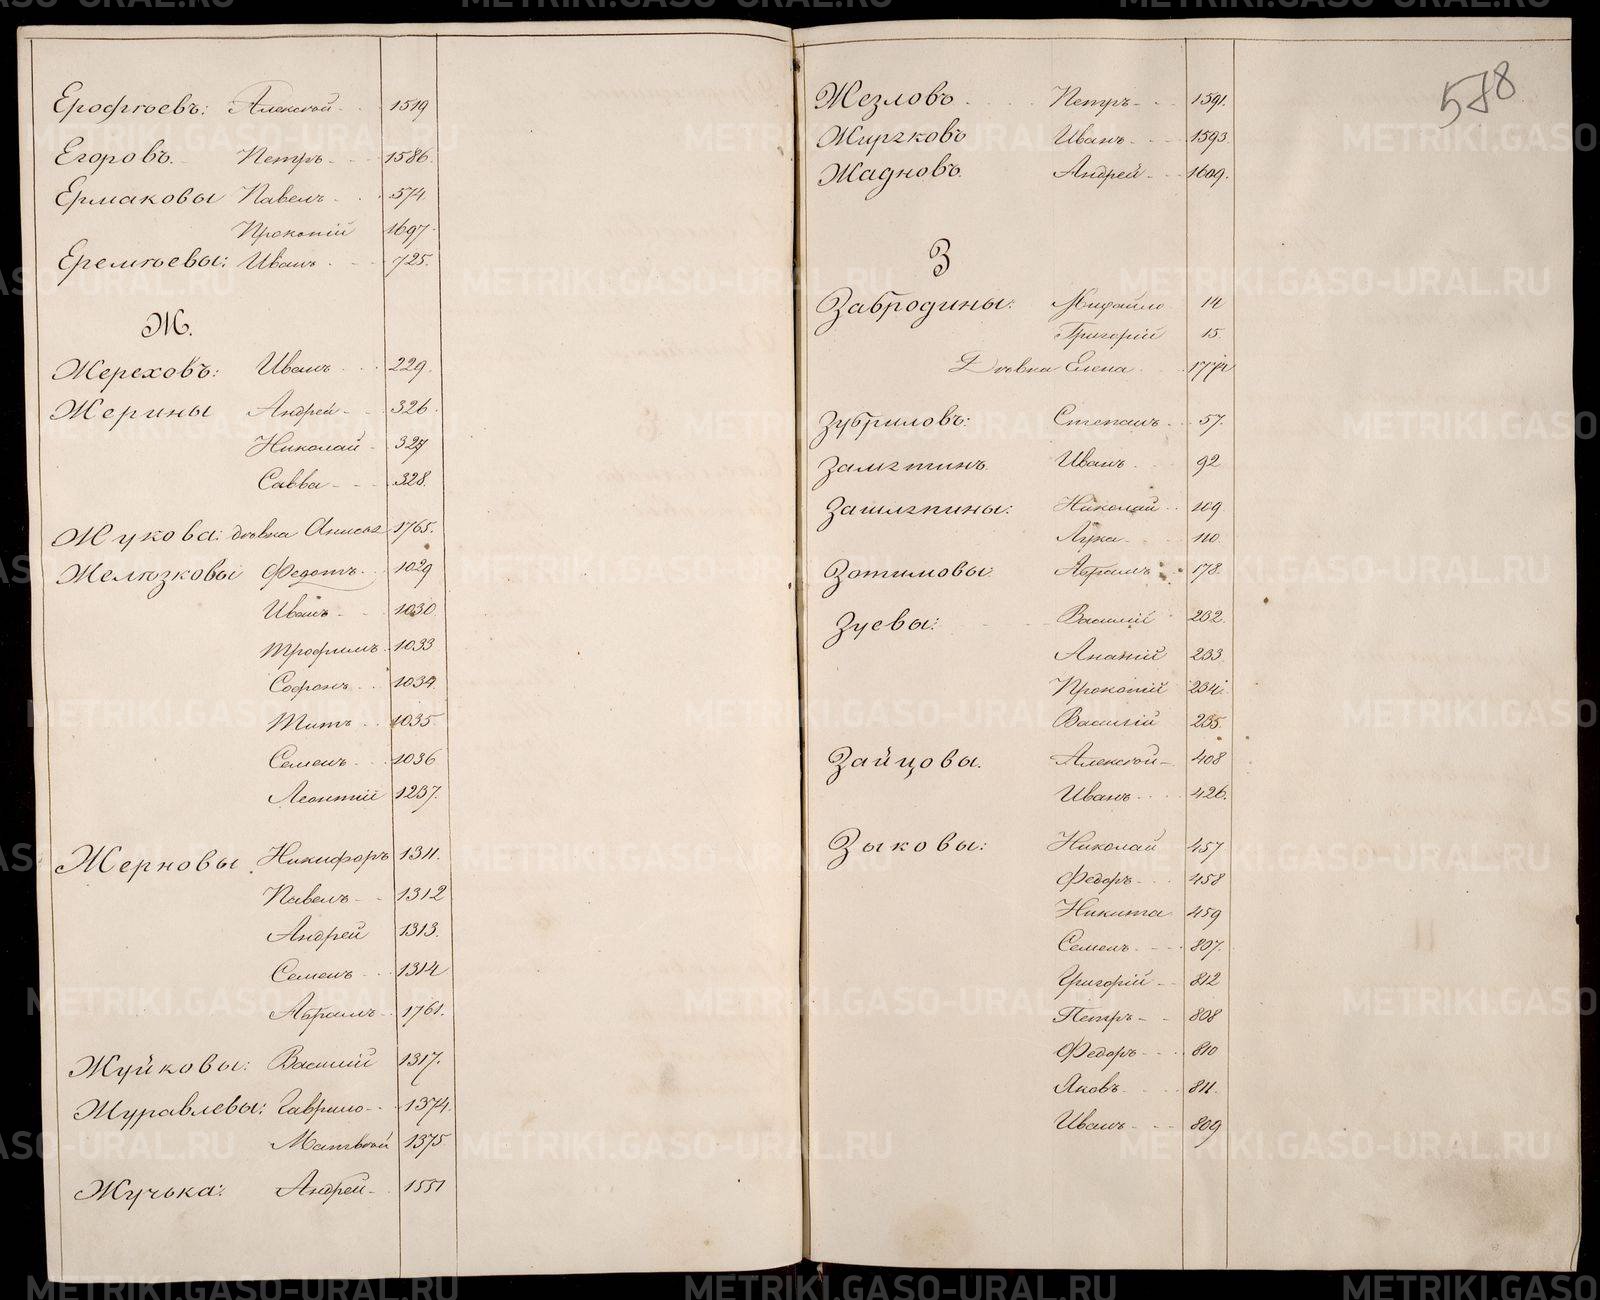 Ерофѣевъ: Алексѣй 1519
Егоровъ. Петръ 1586.
Ермаковы Павелъ 574.
Прокопій 1697
Еремѣевы: Иванъ 725.
Ж.
Жереховъ: Иванъ 229.
Жерины Андрей 326.
Николай 327
Савва 328.
Жукова: дѣвка Анисья 1765.
Желѣзковы Федотъ 1029
Иванъ 1030
Трофимъ 1033
Софонъ 1034.
Титъ 1035
Семенъ 1036
Леонтій 1237.
Жерновы Никифоръ 1311.
Павелъ 1312
Андрей 1313.
Семенъ 1314
Абрамъ 1761.
Жуйковы: Василій 1317.
Журавлевы: Гаврило 1374.
Матвѣй 1375
Жучька: Андрей 1551
578
Жезловъ Петръ 1591.
Жиряковъ Иванъ 1593.
Жадновъ. Андрей 1609.
З
Забродины: Михайло 14
Григорій 15.
Дѣвка Елена
Зубриловъ: Степанъ 57.
Замятинъ Иванъ 92
Зашляпины: Николай 109
Лука 110.
Зотимовы Абрамъ 178.
Зуевы: Василій 232.
Ананій 233
Прокопій 234.
Василій 235.
Зайцовы. Алексѣй 408
Иванъ 426.
Зыковы: Николай 457
Федоръ 458
Никита 459
Семенъ 807.
Григорій 812
Петръ 808
Федоръ 810
Яковъ 811.
Иванъ 809
METRIKI.GASO-URAL.RU